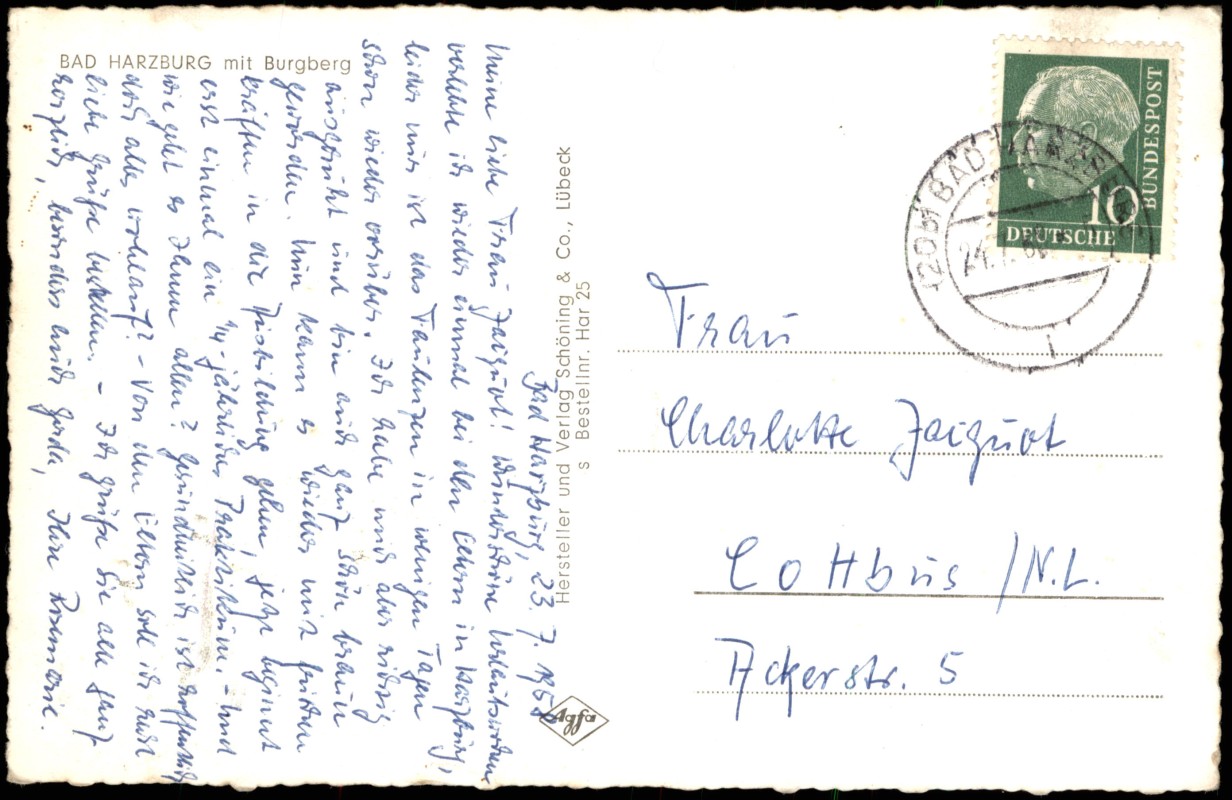 BAD HARZBURG mit Burgberg
Bad Harzburg, 23. 7. 195
Meine liebe Frau Jaiquot! Wunderschöne Urlaubswochen
verlebte ich wieder einmal bei den Eltern in Harzburg,
leider nur ist das Faulenzen in wenigen Tagen
schon wieder vorüber. Ich habe mich aber richtig
ausgeruht und bin auch ganz schön braun
geworden. Nun kann es wieder mit frischen
Kräften in die Ausbildung gehen, jetzt beginnt
erst einmal ein 1/4-jährliches Praktikum. - Und
wie geht es Ihnen allen? Gesundheitlich ist hoffentlich
doch alles wohlauf? - Von den Eltern soll ich recht
liebe Grüße bestellen. - Ich grüße Sie alle ganz
herzlich, besonders auch Gerda, Ihre Rosemarie.
Hersteller und Verlag Schöning & Co., Lübeck
s Bestellnr. Har 25
Agfa
DEUTSCHE
BUNDESPOST
10
(20b) BAD HARZBURG
24.7.
1
Frau
Charlotte Jaiquot
Cottbus /N.L.
Ackerstr. 5